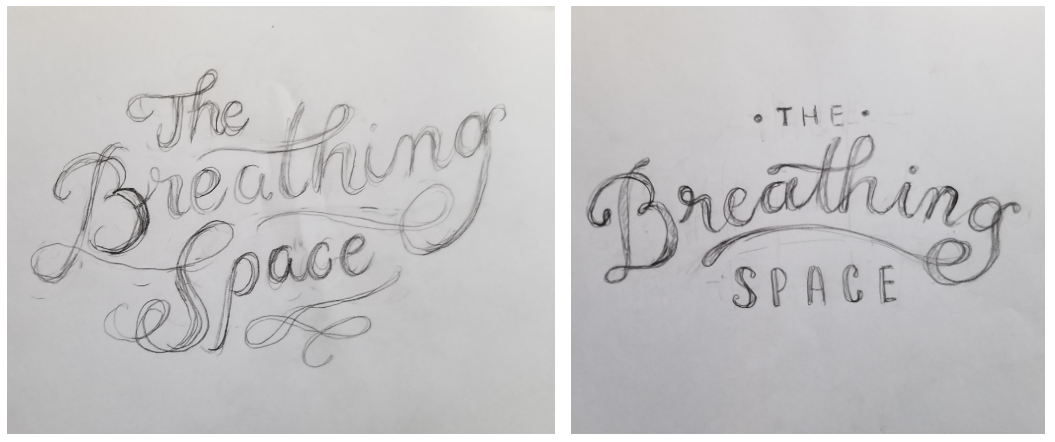 The
Breathing
Space
• THE •
Breathing
SPACE